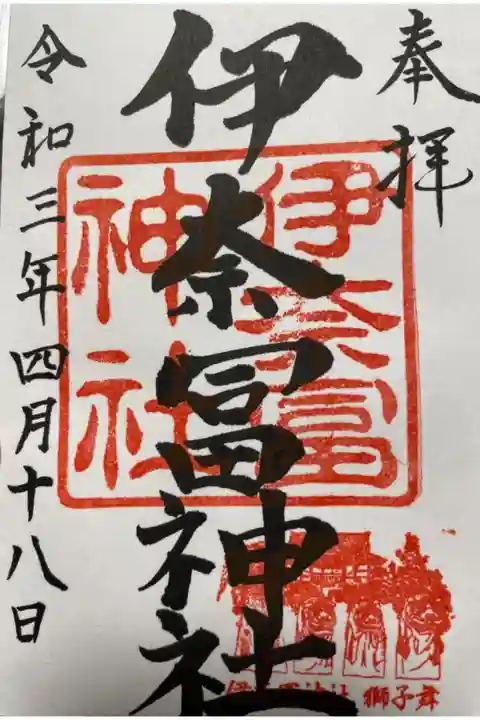 奉拝
伊奈冨神社
伊奈富
神社
令和三年四月十八日
獅子舞